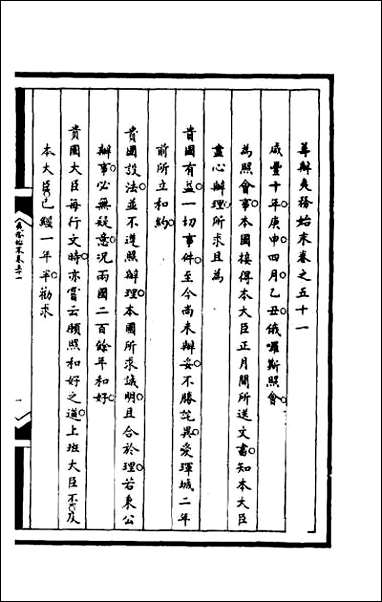 籌辦夷務始末卷之五十一
咸豐十年庚申四月乙丑俄囉斯照會
為照會事本國接得本大臣正月間所送文書知本大臣
盡心辦理所求且為
貴國有益一切事件至今尚未辦妥不勝詫異愛琿城二年
前所立和約
貴國設法並不遵照辦理本國所求誠明且合於理若秉公
辦事必無疑意況兩國二百餘年和好
貴國大臣每行文時亦嘗云願照和好之道上班大臣不
本大臣已經一年半勸求